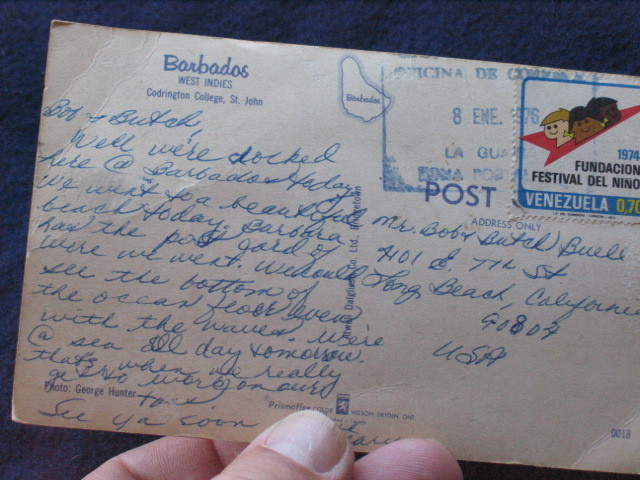 Barbados
WEST INDIES
Codrington College, St. John
Barbados
OFICINA DE
8 ENE. 1976
LA GUA
POST
ADDRESS ONLY
1974
FUNDACION
FESTIVAL DEL NIÑO
VENEZUELA 0,70
Bob & Butch,
Well we're docked
here @ Barbados today.
We went to a beautiful
beach today. Barbara
has the post card of
were we went. We could
see the bottom of
the ocean floor even
with the waves. We're
@ sea all day tomorrow.
that's when we really
get to work on ours
tans
See ya soon
Mr. Bob & Butch Buell
4101 E. 7th St
Long Beach, California
90804
USA
Dalgliesh Co. Ltd., Bridgetown
Photo: George Hunter
Prismaflex COLOR
WILSON, DRYDEN, ONT.
0018